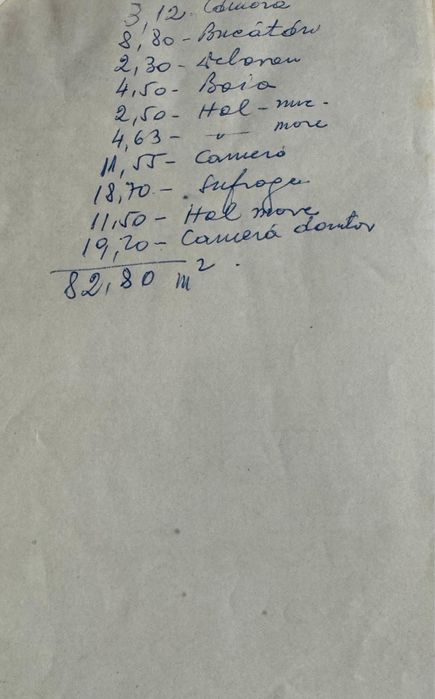 3,12- Cămără
8,80- Bucătăru
2,30-
4,50- Baia
2,50- Hol - mic -
4,63- -〃- more
11,55- Cameră
18,70- Sufrage
11,50- Hol more
19,70- Cameră domitor
82,80 m².